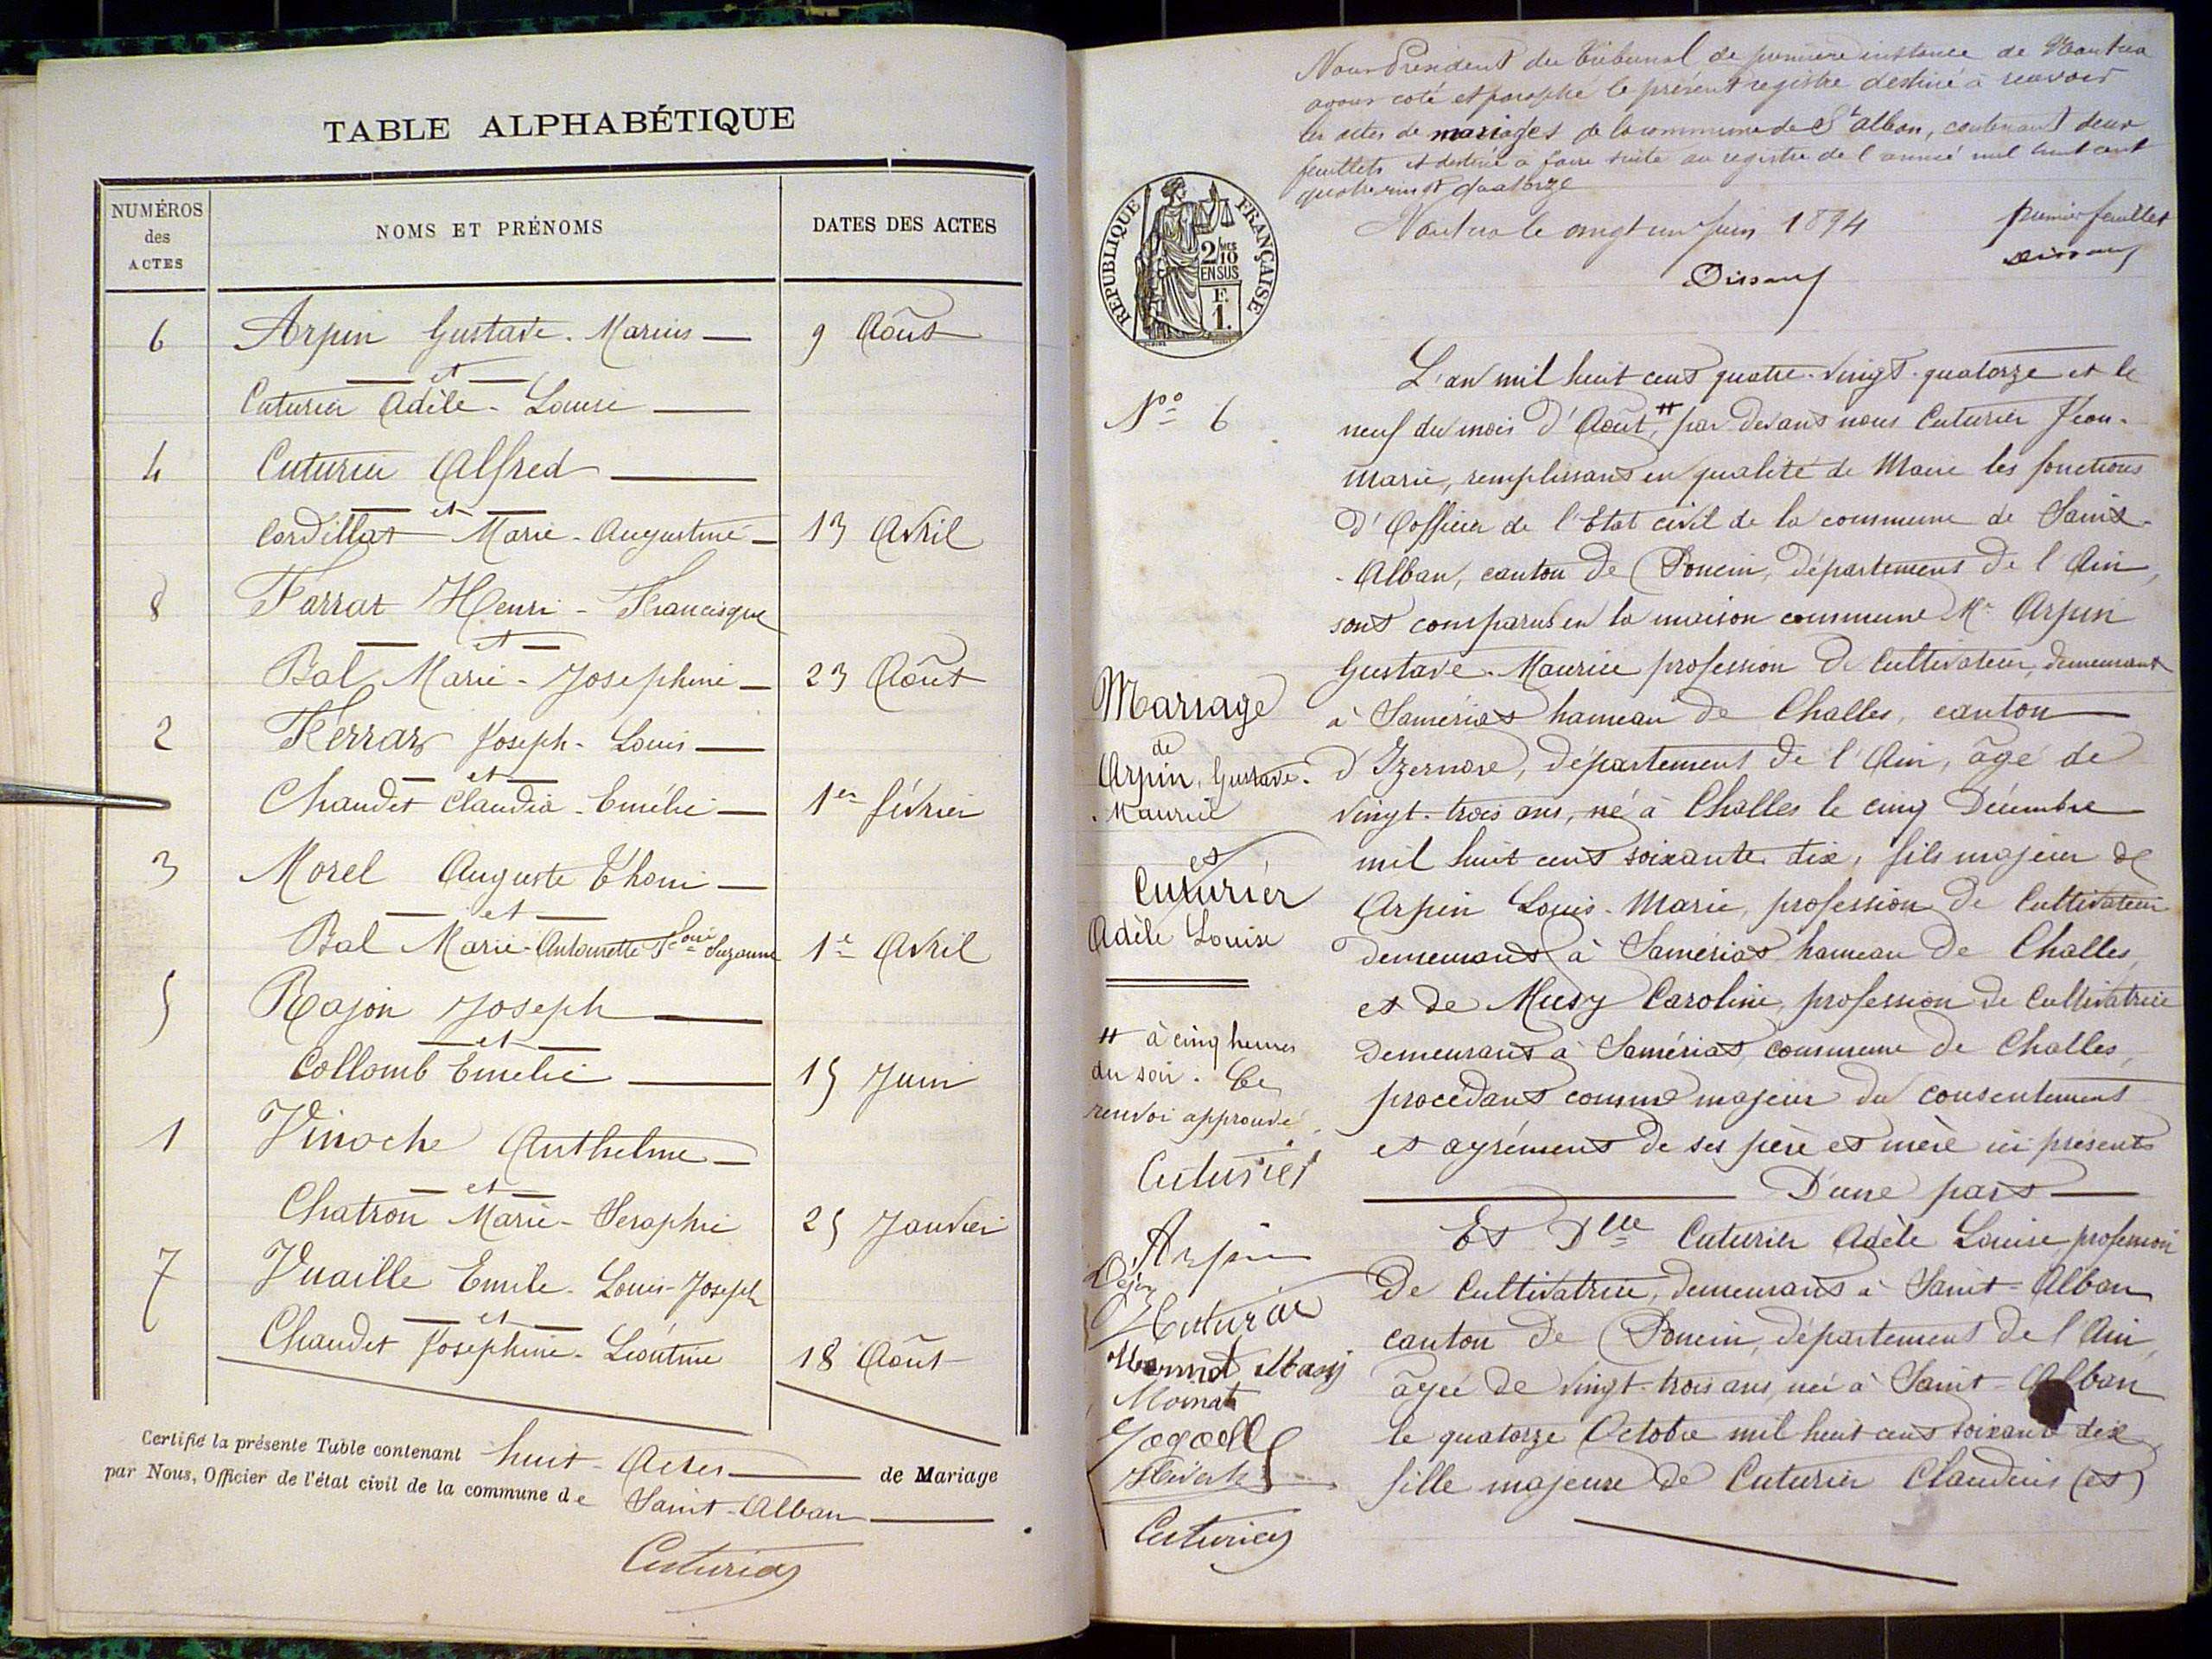 TABLE ALPHABÉTIQUE
NUMÉROS des ACTES
NOMS ET PRÉNOMS
DATES DES ACTES
6 Arpin Gustave. Marius 9 Août
et
Cuturier Adèle. Louise
4 Cuturier Alfred
et
Cordillat Marie. Augustine 13 Avril
8 Farrat Henri - Francisque
et
Bal Marie - Josephine 23 Août
2 Ferrar Joseph - Louis
et
Chaudet Claudia - Emélie 1er février
3 Morel Auguste Thomi
et
Bal Marie-Antoinette Suzanne 1e Avril
5 Rajon Joseph
et
Collomb Emelie 15 Juin
1 Vinoche Anthelme
et
Chatron Marie - Seraphie 25 Janvier
7 Vuaille Emile. Louis-Joseph
et
Chaudet Josephine - Léontine 18 Août
Certifié la présente Table contenant huit Actes de Mariage
par Nous, Officier de l'état civil de la commune de Saint-Alban
Cuturier
Nous Président du Tribunal de première instance de Nantua
avons coté et paraphé le présent registre destiné à recevoir
les actes de mariages de la commune de St Alban, contenant deux
feuillets et destiné à faire suite au registre de l'année mil huit cent
quatre vingt quatorze
Nantua le vingt un Juin 1894
premier feuillet
RÉPUBLIQUE FRANÇAISE
2/10MES
EN SUS
F.
1.
No 6
L'an mil huit cent quatre-vingt-quatorze et le
neuf du mois d'Août, # par devant nous Cuturier Jean-
marie, remplissant en qualité de Maire les fonctions
d'Oofficier de l'Etat civil de la commune de Saint-
-Alban, canton de Poncin, département de l'Ain,
sont comparus en la maison commune Mr Arpin
Gustave-Maurice profession de Cultivateur, demeurant
à Samériat hameau de Challes, canton
d'Izernore, département de l'Ain, âgé de
vingt-trois ans, né à Challes le cinq Décembre
mil huit cent soixante dix, fils majeur de
Arpin Louis-Marie, profession de Cultivateur
demeurant à Samériat hameau de Challes,
et de Musy Caroline, profession de Cultivatrice
demeurant à Samériat, commune de Challes,
procédant comme majeur du consentement
et agrément de ses père et mère ici présents
D'une part
Et Dlle Cuturier Adèle Louise profession
de Cultivatrice, demeurant à Saint-Alban
canton de Poncin, département de l'Ain,
âgée de vingt-trois ans, née à Saint-Alban
le quatorze Octobre mil huit cent soixante dix
fille majeure de Cuturier Claudius (et)
Mariage
de
Arpin, Gustave-
-Maurice
et
Cuturier
Adèle Louise
# à cinq heures
du soir. Ce
renvoi approuvé.
Cuturier
Arpin
Cuturier
Mornat
Cuturier